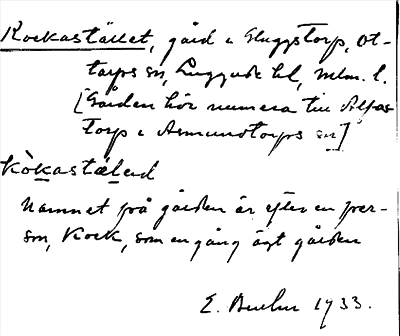 Kockastället, gård i Sluggstorp, Ot-
tarps sn, Luggude hd, Mlm. l.
[Gården hör numera till Alfas-
torp i Asmundtorps sn]
kòkastæled
Namnet på gården är efter en per-
son, Kock, som en gång ägt gården
E. 1933.